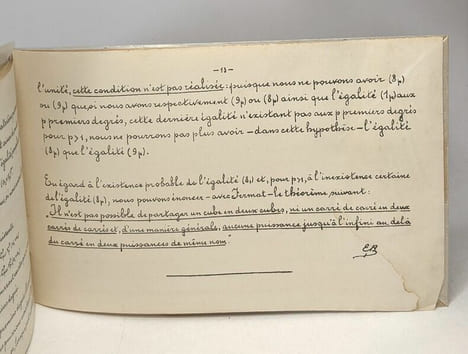 — 13 —
l'unité, cette condition n'est pas réalisée : puisque nous ne pouvons avoir (8p)
ou (9p) que si nous avons respectivement (9p) ou (8p) ainsi que l'égalité (1p) aux
p premiers degrés, cette dernière égalité n'existant pas aux p premiers degrés
pour p>1, nous ne pourrons pas plus avoir - dans cette hypothèse - l'égalité
(8p) que l'égalité (9p).
Eu égard à l'existence probable de l'égalité (81) et, pour p>1, à l'inexistence certaine
de l'égalité (8p), nous pouvons énoncer - avec Fermat - le théorème suivant :
"Il n'est pas possible de partager un cube en deux cubes, ni un carré de carré en deux
carrés de carrés et, d'une manière générale, aucune puissance jusqu'à l'infini au delà
du carré en deux puissances de même nom."